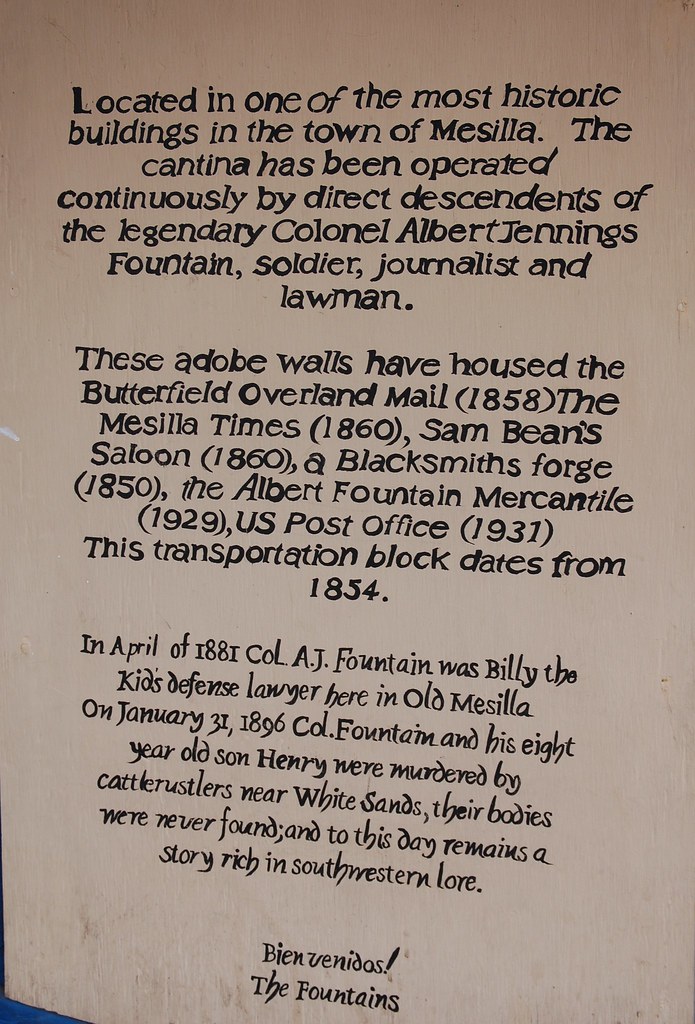 Located in one of the most historic
buildings in the town of Mesilla. The
cantina has been operated
continuously by direct descendents of
the legendary Colonel Albert Jennings
Fountain, soldier, journalist and
lawman.
These adobe walls have housed the
Butterfield Overland Mail (1858) The
Mesilla Times (1860), Sam Bean's
Saloon (1860), a Blacksmiths forge
(1850), the Albert Fountain Mercantile
(1929), US Post Office (1931)
This transportation block dates from
1854.
In April of 1881 Col. A.J. Fountain was Billy the
Kid's defense lawyer here in Old Mesilla
On January 31, 1896 Col. Fountain and his eight
year old son Henry were murdered by
cattlerustlers near White Sands, their bodies
were never found; and to this day remains a
story rich in southwestern lore.
Bienvenidos!
The Fountains